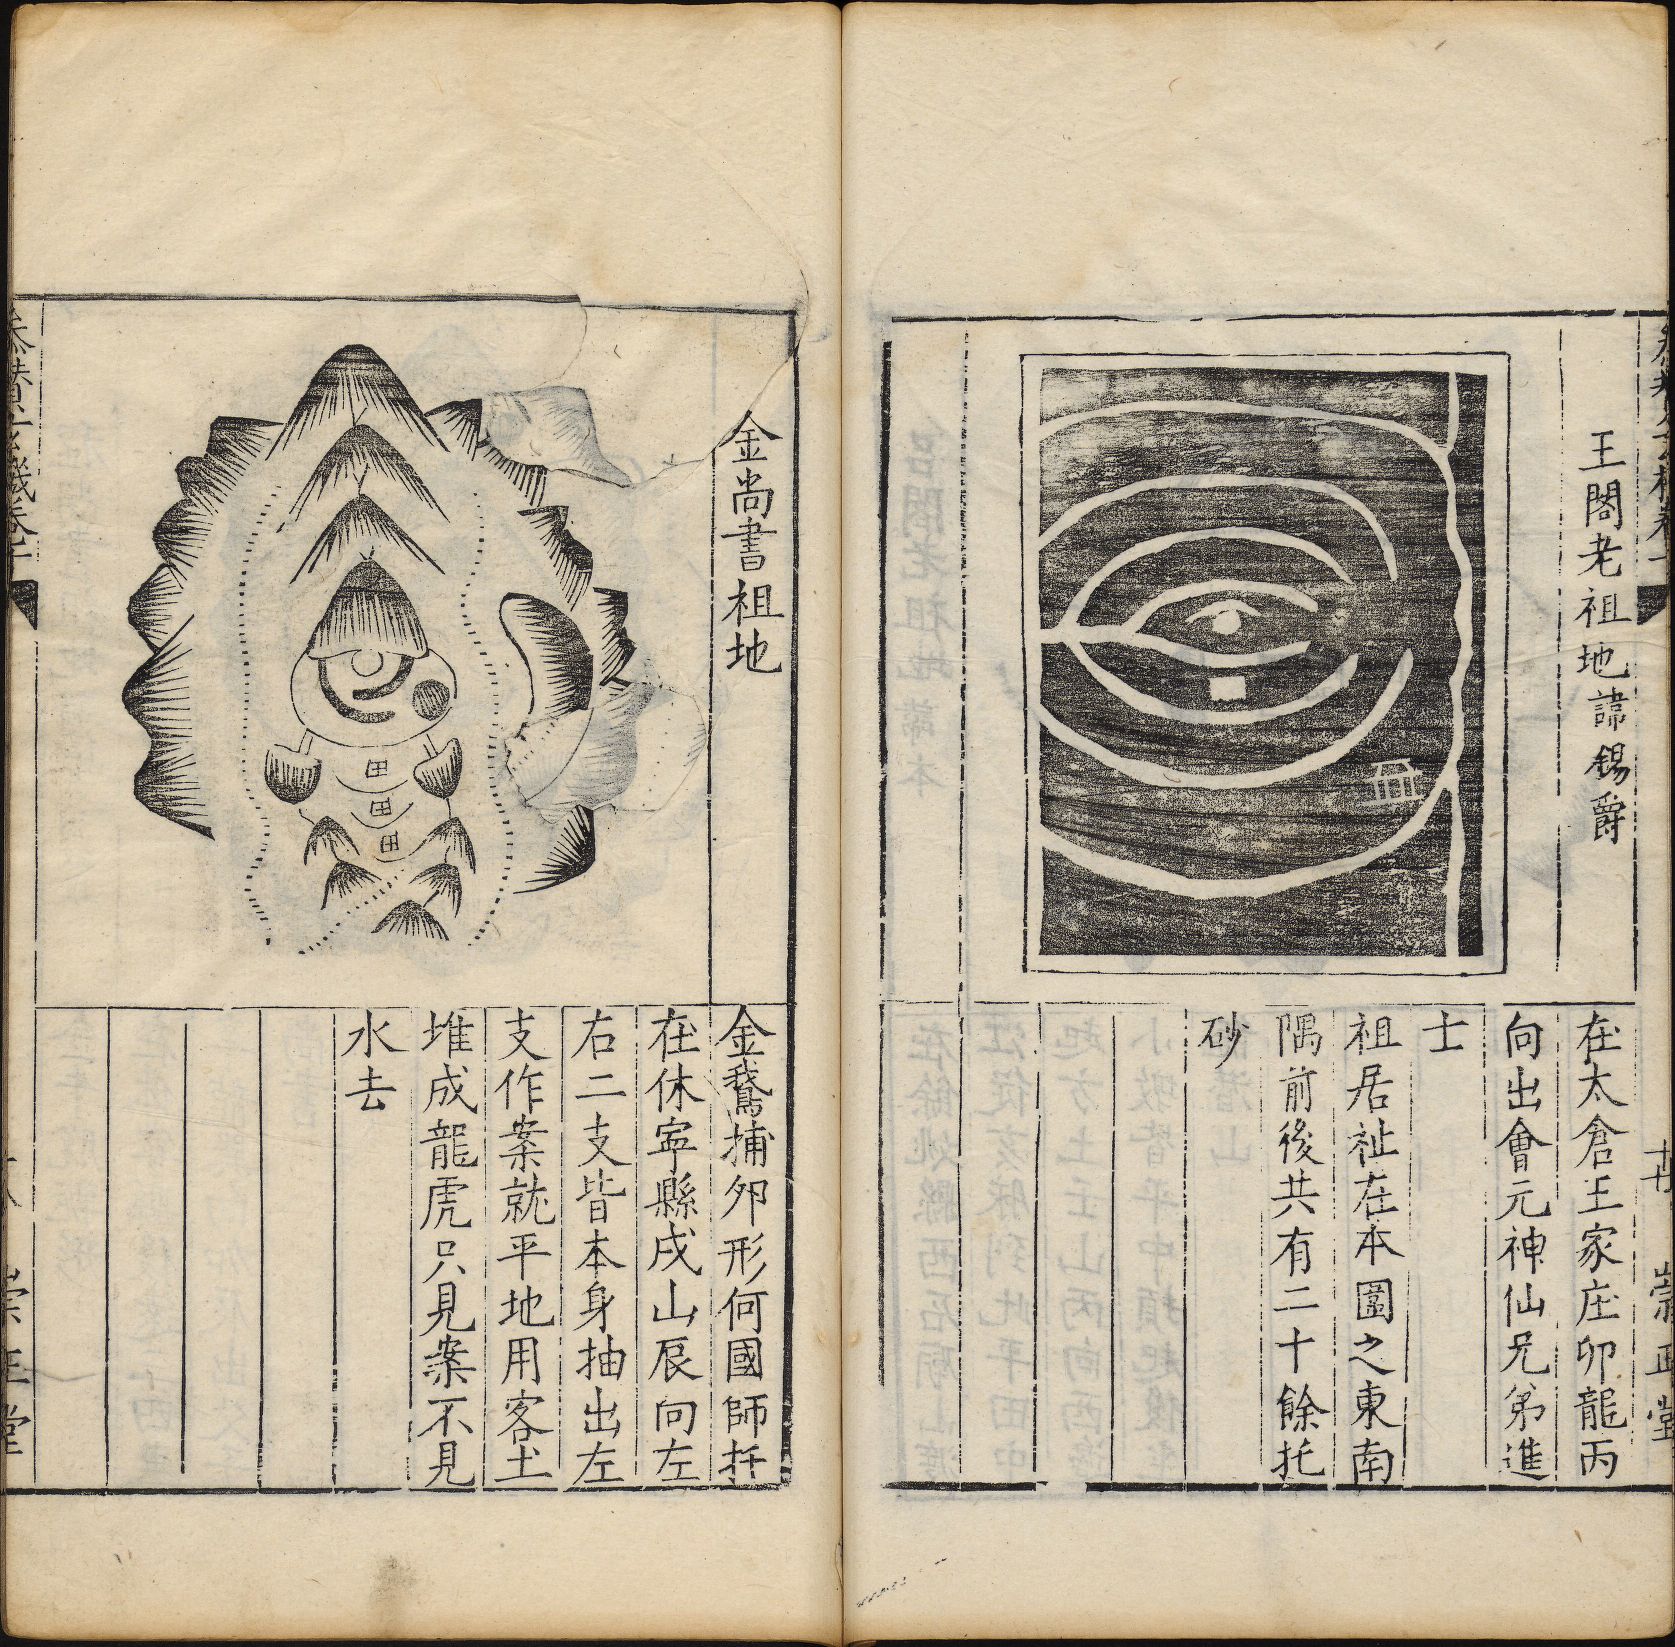 王閣老祖地諱錫爵
在太倉王家庄卯龍丙
向出會元神仙兄弟進
士
祖居祉在本圖之東南
隅前後共有二十餘托
砂
崇正堂
金尚書祖地
金鵞捕夘形何國師扦
在休寧縣戌山辰向左
右二支皆本身抽出左
支作案就平地用客土
堆成龍虎只見案不見
水去